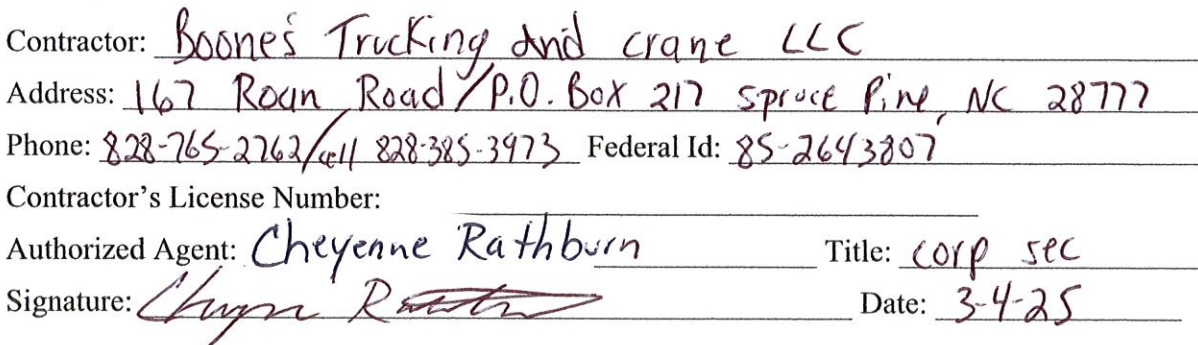 Contractor: Boone's Trucking and crane LLC
Address: 167 Roan Road / P.O. Box 217 Spruce Pine, NC 28777
Phone: 828-765-2762/cell 828-385-3973 Federal Id: 85-2643807
Contractor's License Number:
Authorized Agent: Cheyenne Rathburn Title: corp sec
Signature: Date: 3-4-25